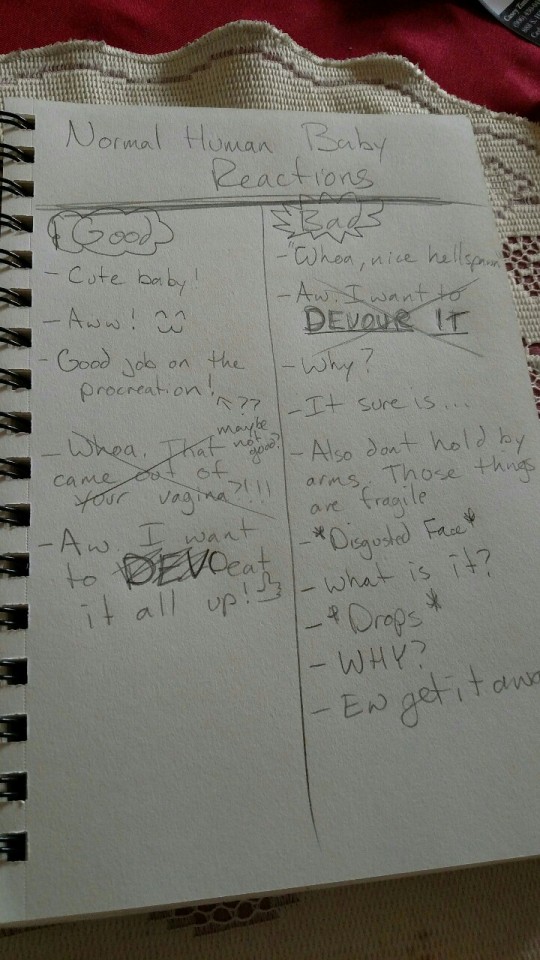 Normal Human Baby
Reactions
Good
- Cute baby!
- Aww!
- Good job on the
procreation!
??
maybe
not
good?
- Whoa. That
came out of
your vagina?!!!
- Aw I want
to DEVO eat
it all up!
Bad
- "Whoa, nice hellspawn
- Aw. I want to
DEVOUR IT
- Why?
- It sure is...
- Also dont hold by
arms. Those things
are fragile
- *Disgusted Face*
- what is it?
- *Drops*
- WHY?
- Ew get it awa